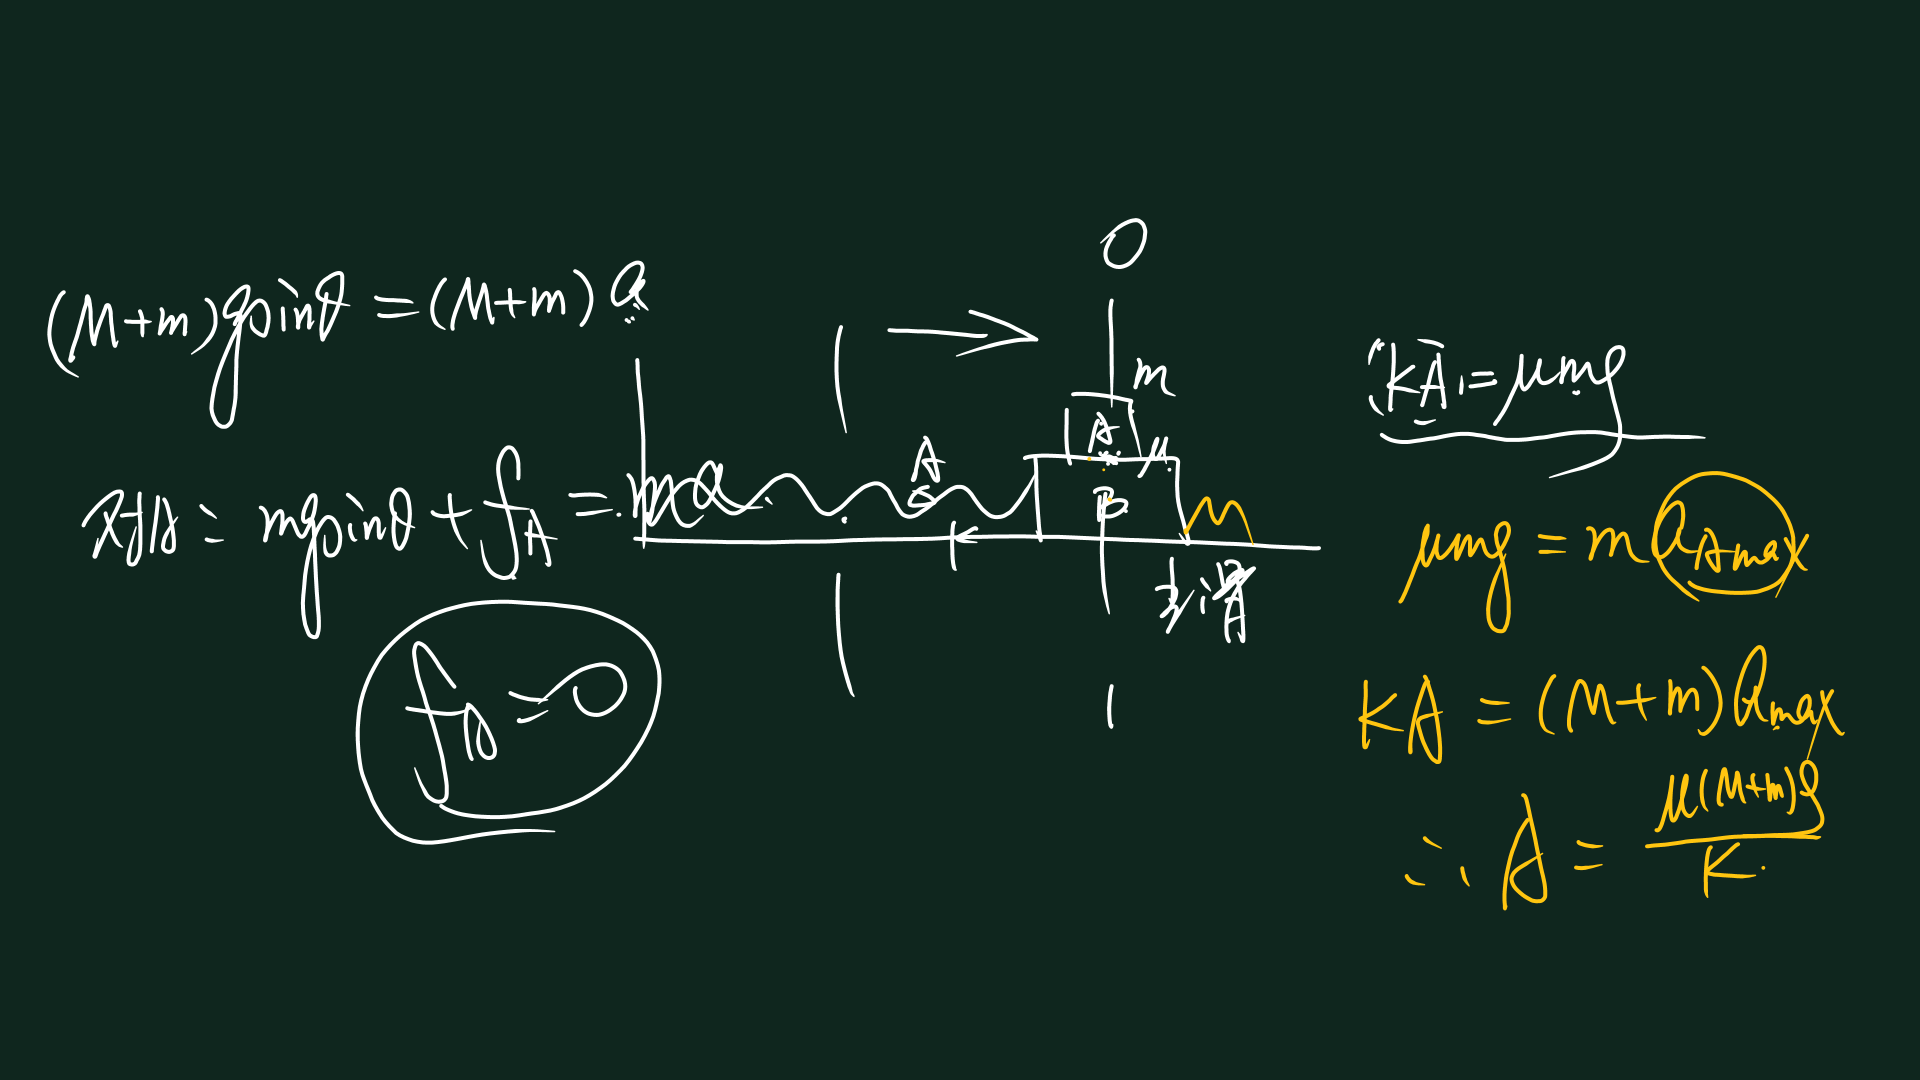 (M+m)gsinθ=(M+m)a
对A: mgsinθ+f_A=ma
f_A=0
O
m
A
μ
A
B
光滑
KA=μmg
μmg=ma_Amax
KA=(M+m)a_max
∴A=μ(M+m)g/K